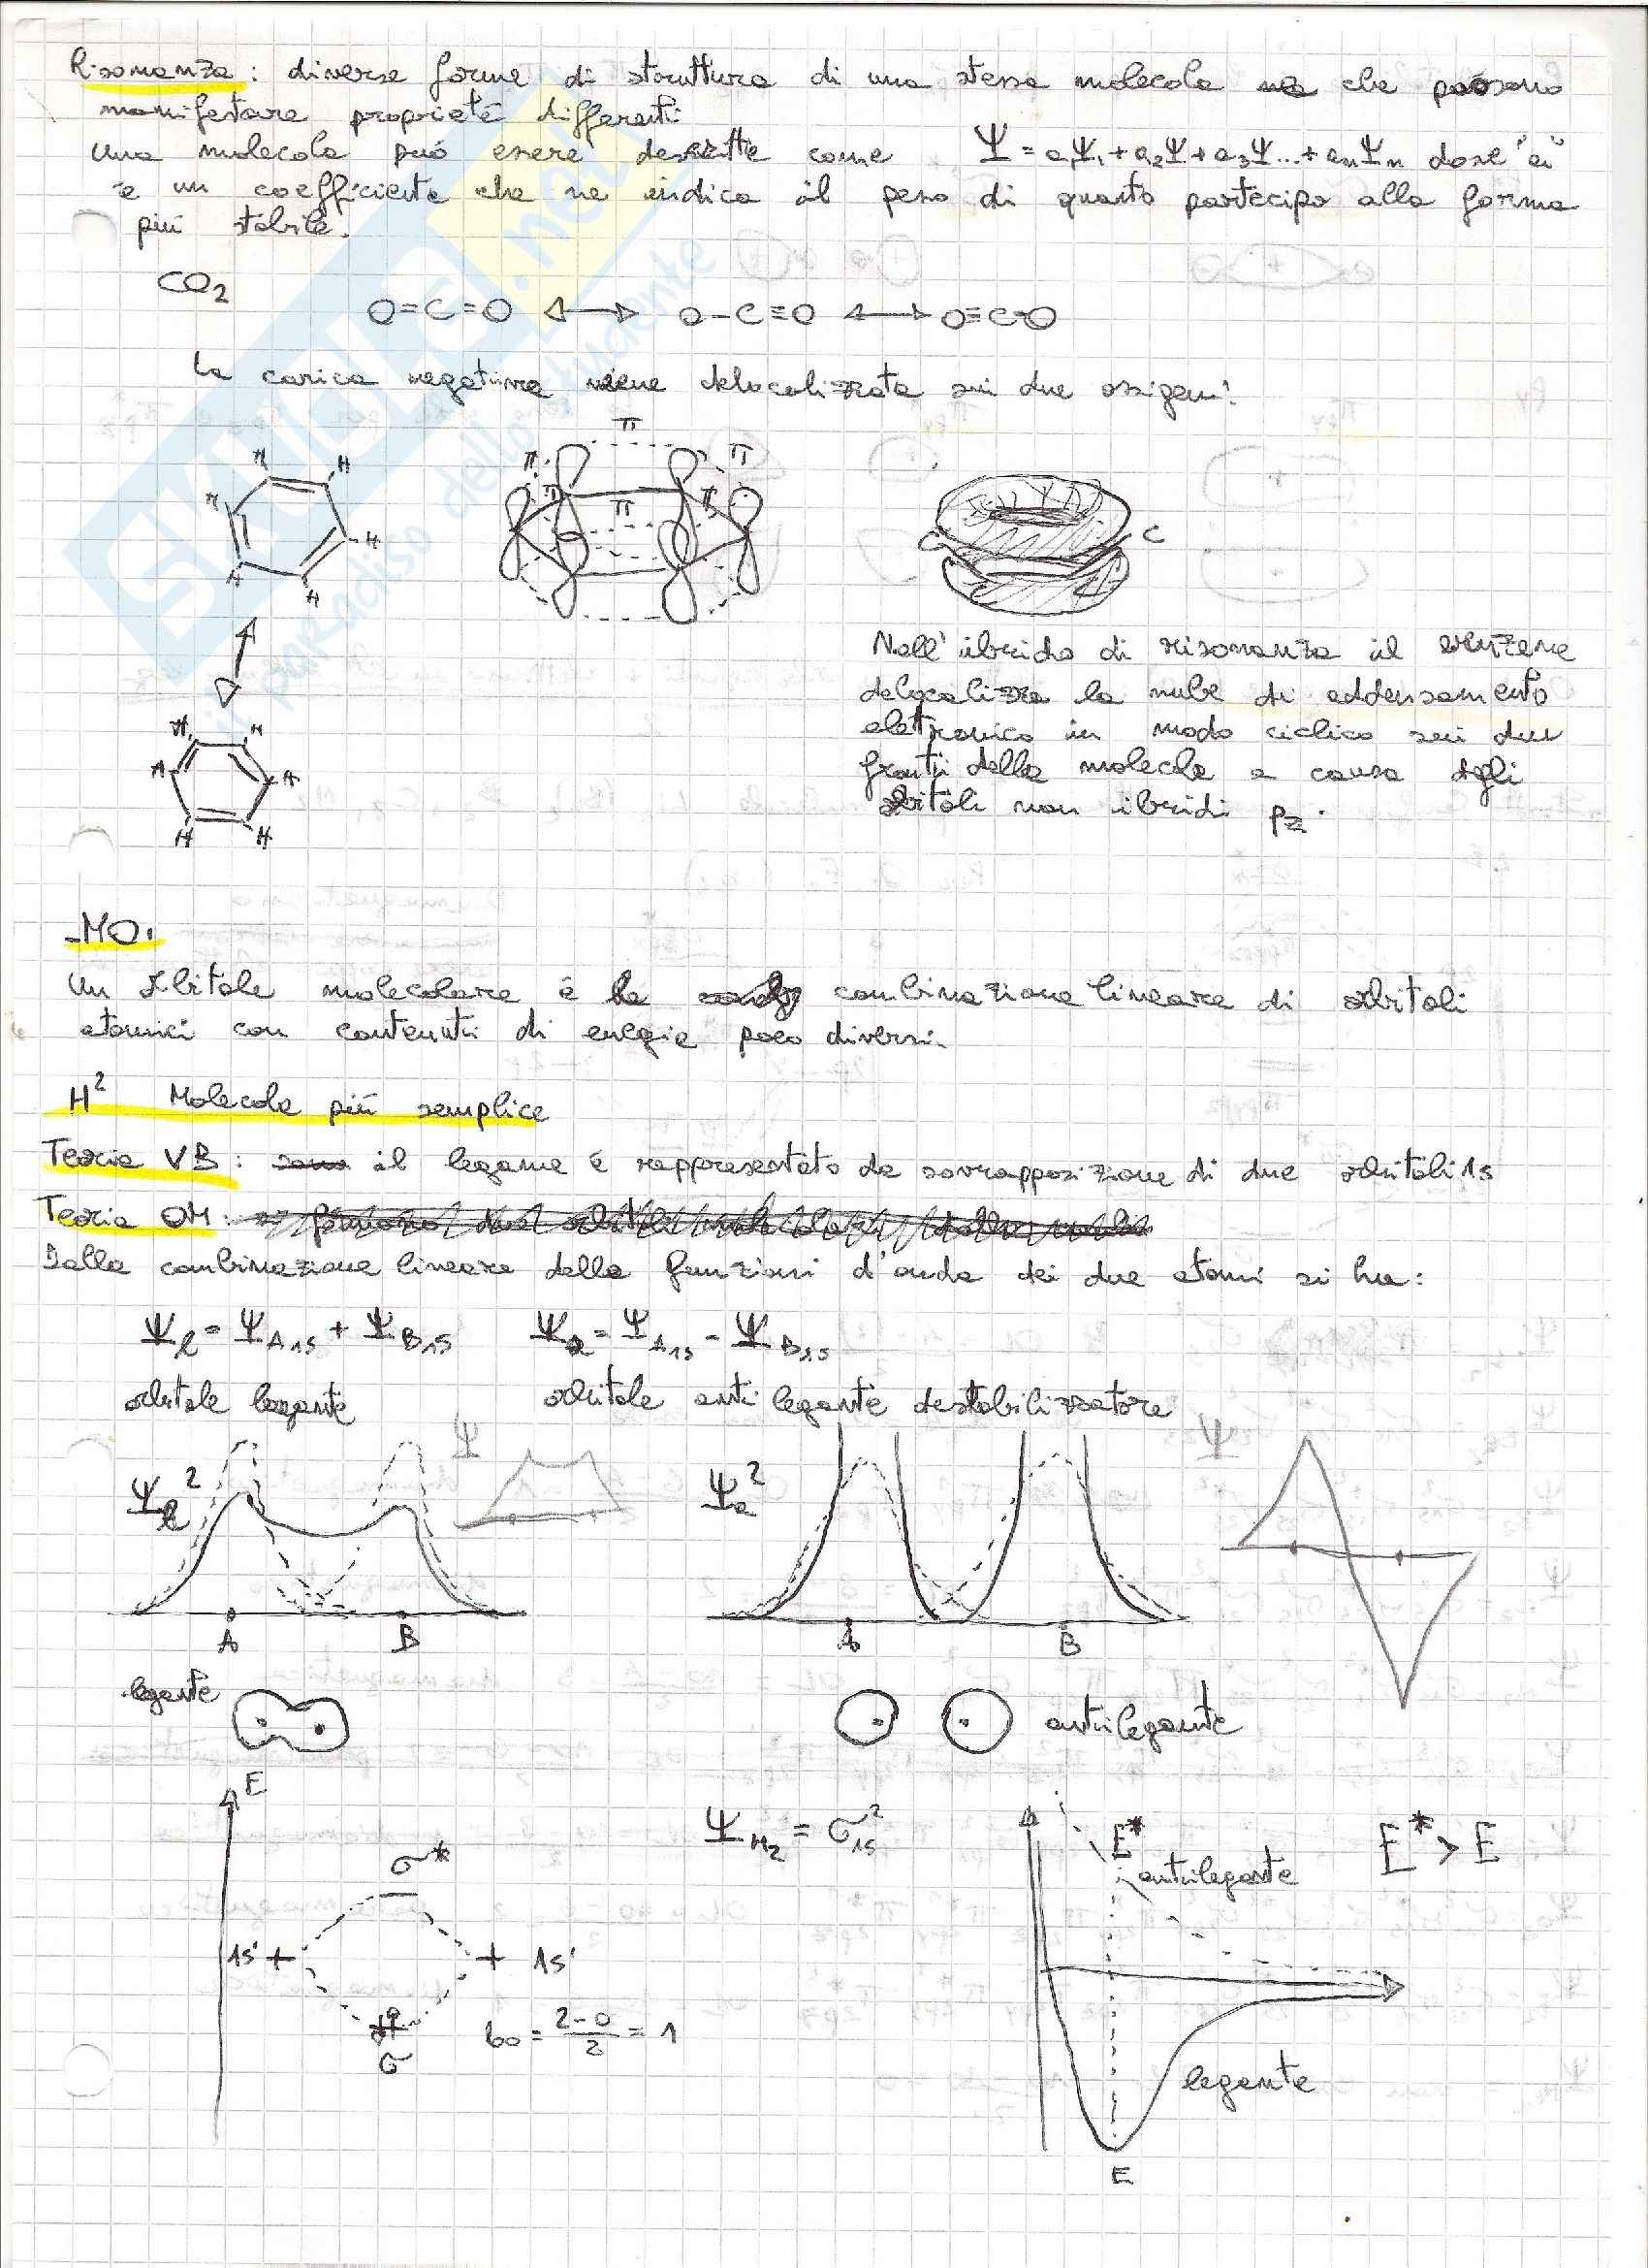 Risonanza: diverse forme di struttura di una stessa molecola che possono
manifestare proprietà differenti
Una molecola può essere descritta come Ψ = a₁Ψ₁ + a₂Ψ + a₃Ψ... + anΨn dove "ai"
è un coefficiente che ne indica il peso di quanto partecipa alla forma
più stabile.
CO₂
O=C=O ⟷ O-C≡O ⟷ O≡C-O
la carica negativa viene delocalizzata sui due ossigeni.
π
H H π π
H π π π
H C
H H
Nell'ibrido di risonanza il benzene
delocalizza la nube di addensamento
elettronico in modo ciclico sui due
fronti della molecola a causa degli
orbitali non ibridi pz.
H H
H H
H H
-MO.
Un orbitale molecolare è la combinazione lineare di orbitali
atomici con contenuti di energia poco diversi.
H² Molecola più semplice
Teoria VB: il legame è rappresentato da sovrapposizione di due orbitali 1s
Teoria OM:
Dalla combinazione lineare delle funzioni d'onda dei due atomi si ha:
Ψl = ΨA1s + ΨB1s Ψa = ΨA1s - ΨB1s
orbitale legante orbitale anti legante destabilizzatore
Ψl² Ψ Ψa² Ψ
A B A B
legante antilegante
E ΨH₂ = σ1s² E* E* > E
σ* antilegante
1s' 1s'
σ bo = 2-0/2 = 1 legante
E
SKUOLA.net
il paradiso dello studente